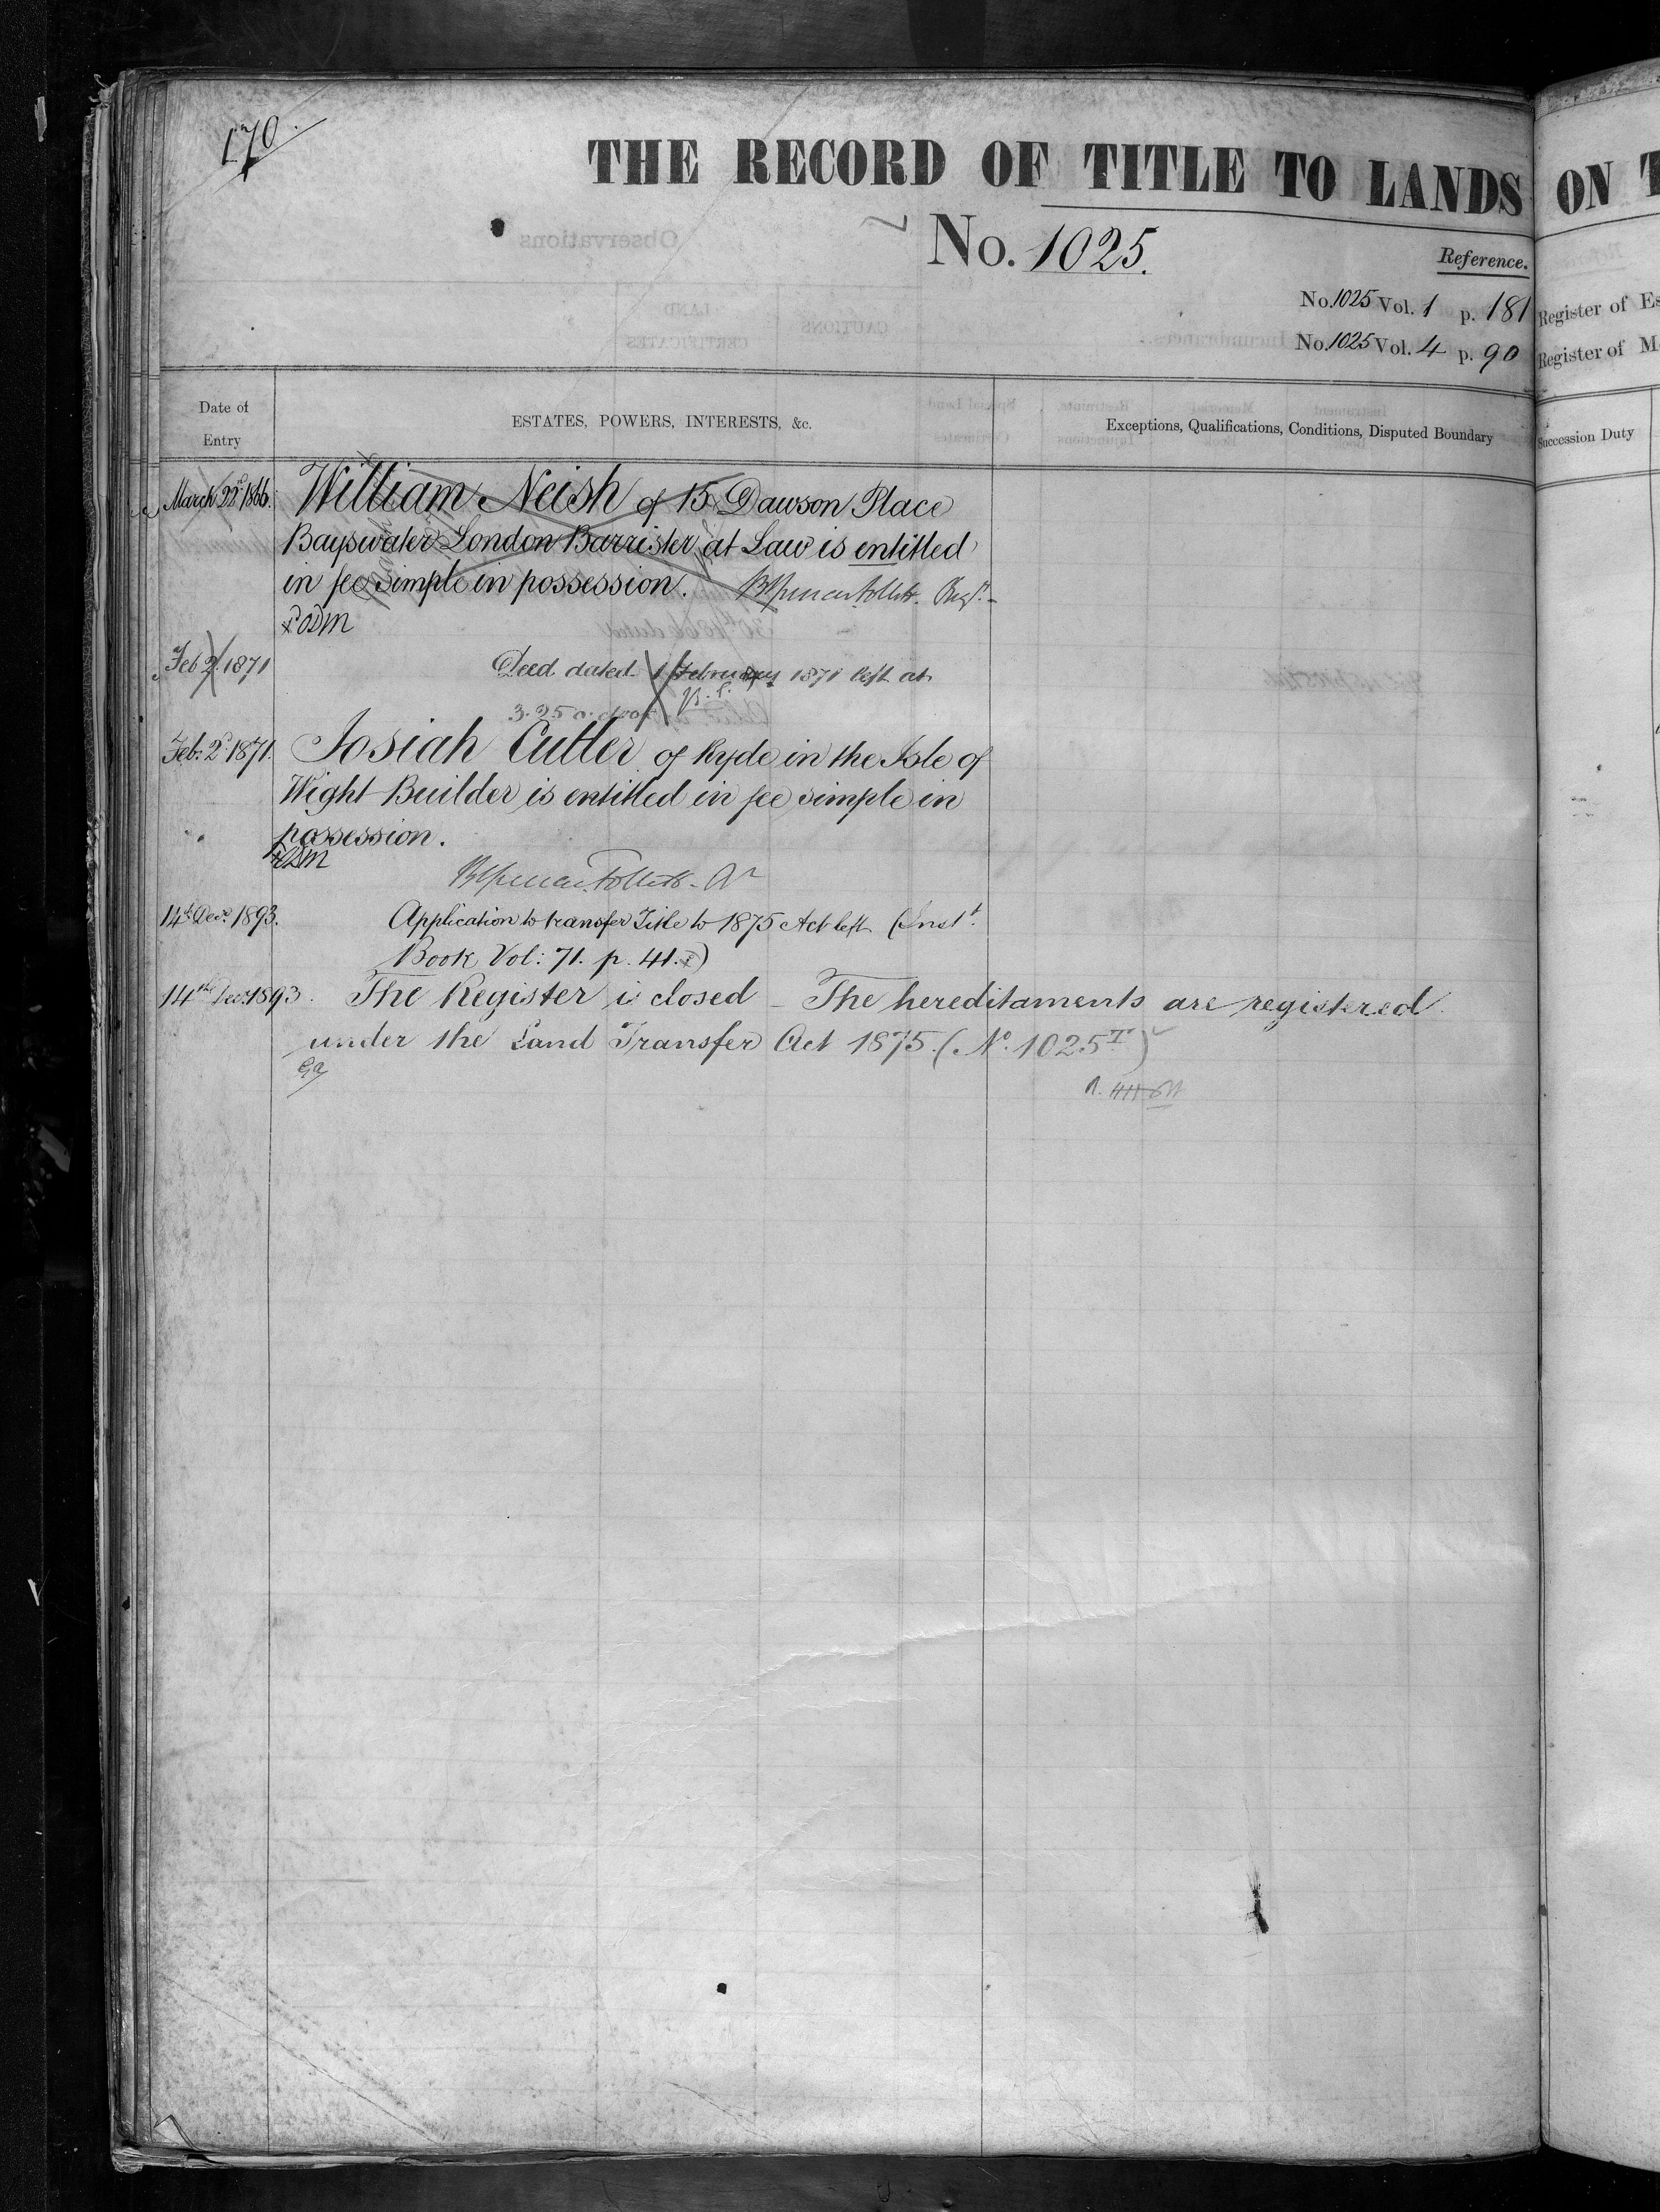 170.
THE RECORD OF TITLE TO LANDS ON T
No. 1025.
Reference.
No. 1025 Vol. 1 p. 181 Register of Es
No. 1025 Vol. 4 p. 90 Register of M
Date of Entry
ESTATES, POWERS, INTERESTS, &c.
Exceptions, Qualifications, Conditions, Disputed Boundary
Succession Duty
March 22d 1866. William Neish of 15 Dawson Place
Bayswater London Barrister at Law is entitled
in fee simple in possession.
Feb 2. 1871 Deed dated 1 February 1871 left at
3.25 o'clock
Feb. 2d 1871. Josiah Cutler of Ryde in the Isle of
Wight Builder is entitled in fee simple in
possession.
14th Decr. 1893. Application to transfer Title to 1875 Act left (Instt.
Book Vol: 71. p. 41.)
14th Decr. 1893. The Register is closed – The hereditaments are registered
under the Land Transfer Act 1875. (No. 1025 T)